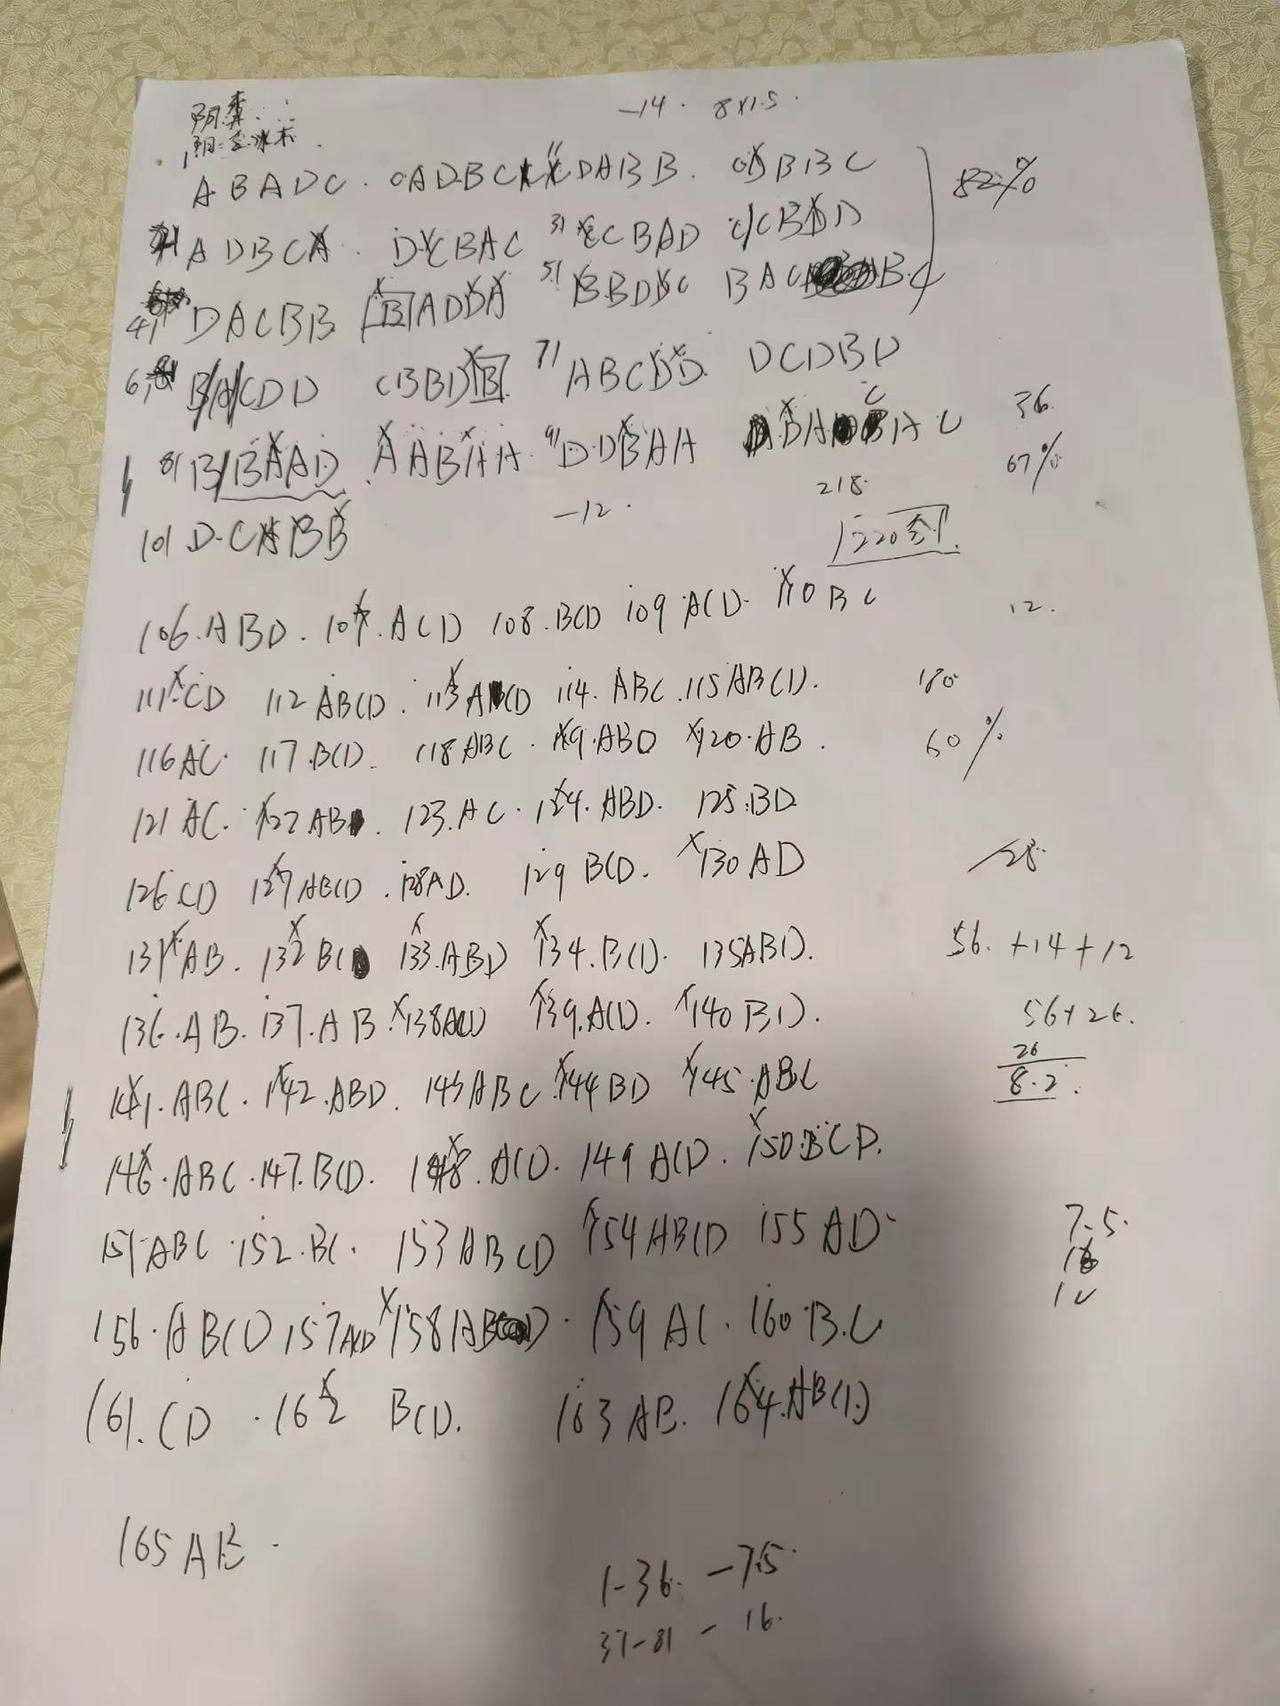 -14. 8×1.5.
ABADC. CADBC CDABB. BBC 82%
ADBCA. DCBAC 31 CCBAD CCBDD
41 DACBB BADBA 51 BBDBC BAC BC
61 B/A/CDD CBBDB 71 ABCDD. DCDBD
36.
81 B/BAAD AABAA 91 D.DBAA AC 67%
-12. 218.
101 D.C BB 1220
106.ABD. 107.ACD 108.BCD 109 ACD. 110 BC 12.
111.CD 112 ABCD. 113 A CD 114. ABC. 115 ABCD. 180
116 AC. 117.BCD. 118 ABC. 119.ABD 120.AB. 60%
121 AC. 122 AB. 123.AC. 124.ABD. 125.BD
126.CD 127 ABCD. 128 AD. 129 BCD. 130 AD 28.
131 AB. 132 BC 133.ABD 134.BCD. 135 ABD. 56. +14+12
136.AB. 137.AB. 138 ACD 139.ACD. 140 BD. 56+26.
26
141.ABC. 142.ABD. 143 ABC. 144 BD 145.ABC 8.2.
146.ABC. 147.BCD. 148.ACD. 149 ACD. 150.BCD.
151 ABC. 152.BC. 153 ABCD 154 ABCD 155 AD. 7.5.
156.ABCD 157 ACD 158 AB D. 159 AC. 160.B.C
161.CD. 162 BCD. 163 AB. 164.ABCD
165 AB.
1-36. -7.5.
37-81 - 16.